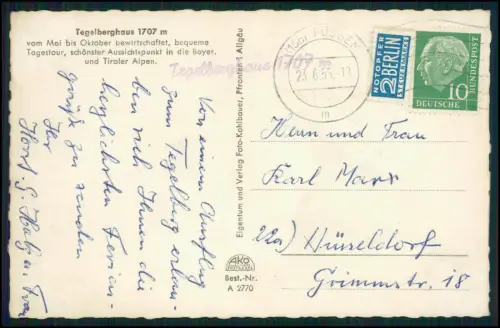 Tegelberghaus 1707 m
vom Mai bis Oktober bewirtschaftet, bequeme
Tagestour, schönster Aussichtspunkt in die Bayer.
und Tiroler Alpen.
Tegelberghaus 1707 m
Von einem Ausflug
zum Tegelberg erlau-
ben sich Ihnen die
herzlichsten Ferien-
grüße zu senden
Ihr
Horst
Eigentum und Verlag Foto-Kohlbauer, Pfronten i. Allgäu
AKO
Best.-Nr.
A 2770
FÜSSEN
NOTOPFER
2 BERLIN
STEUERMARKE
10
DEUTSCHE
BUNDESPOST
Herrn und Frau
Karl Marx
22a) Düsseldorf
Grimmstr. 18